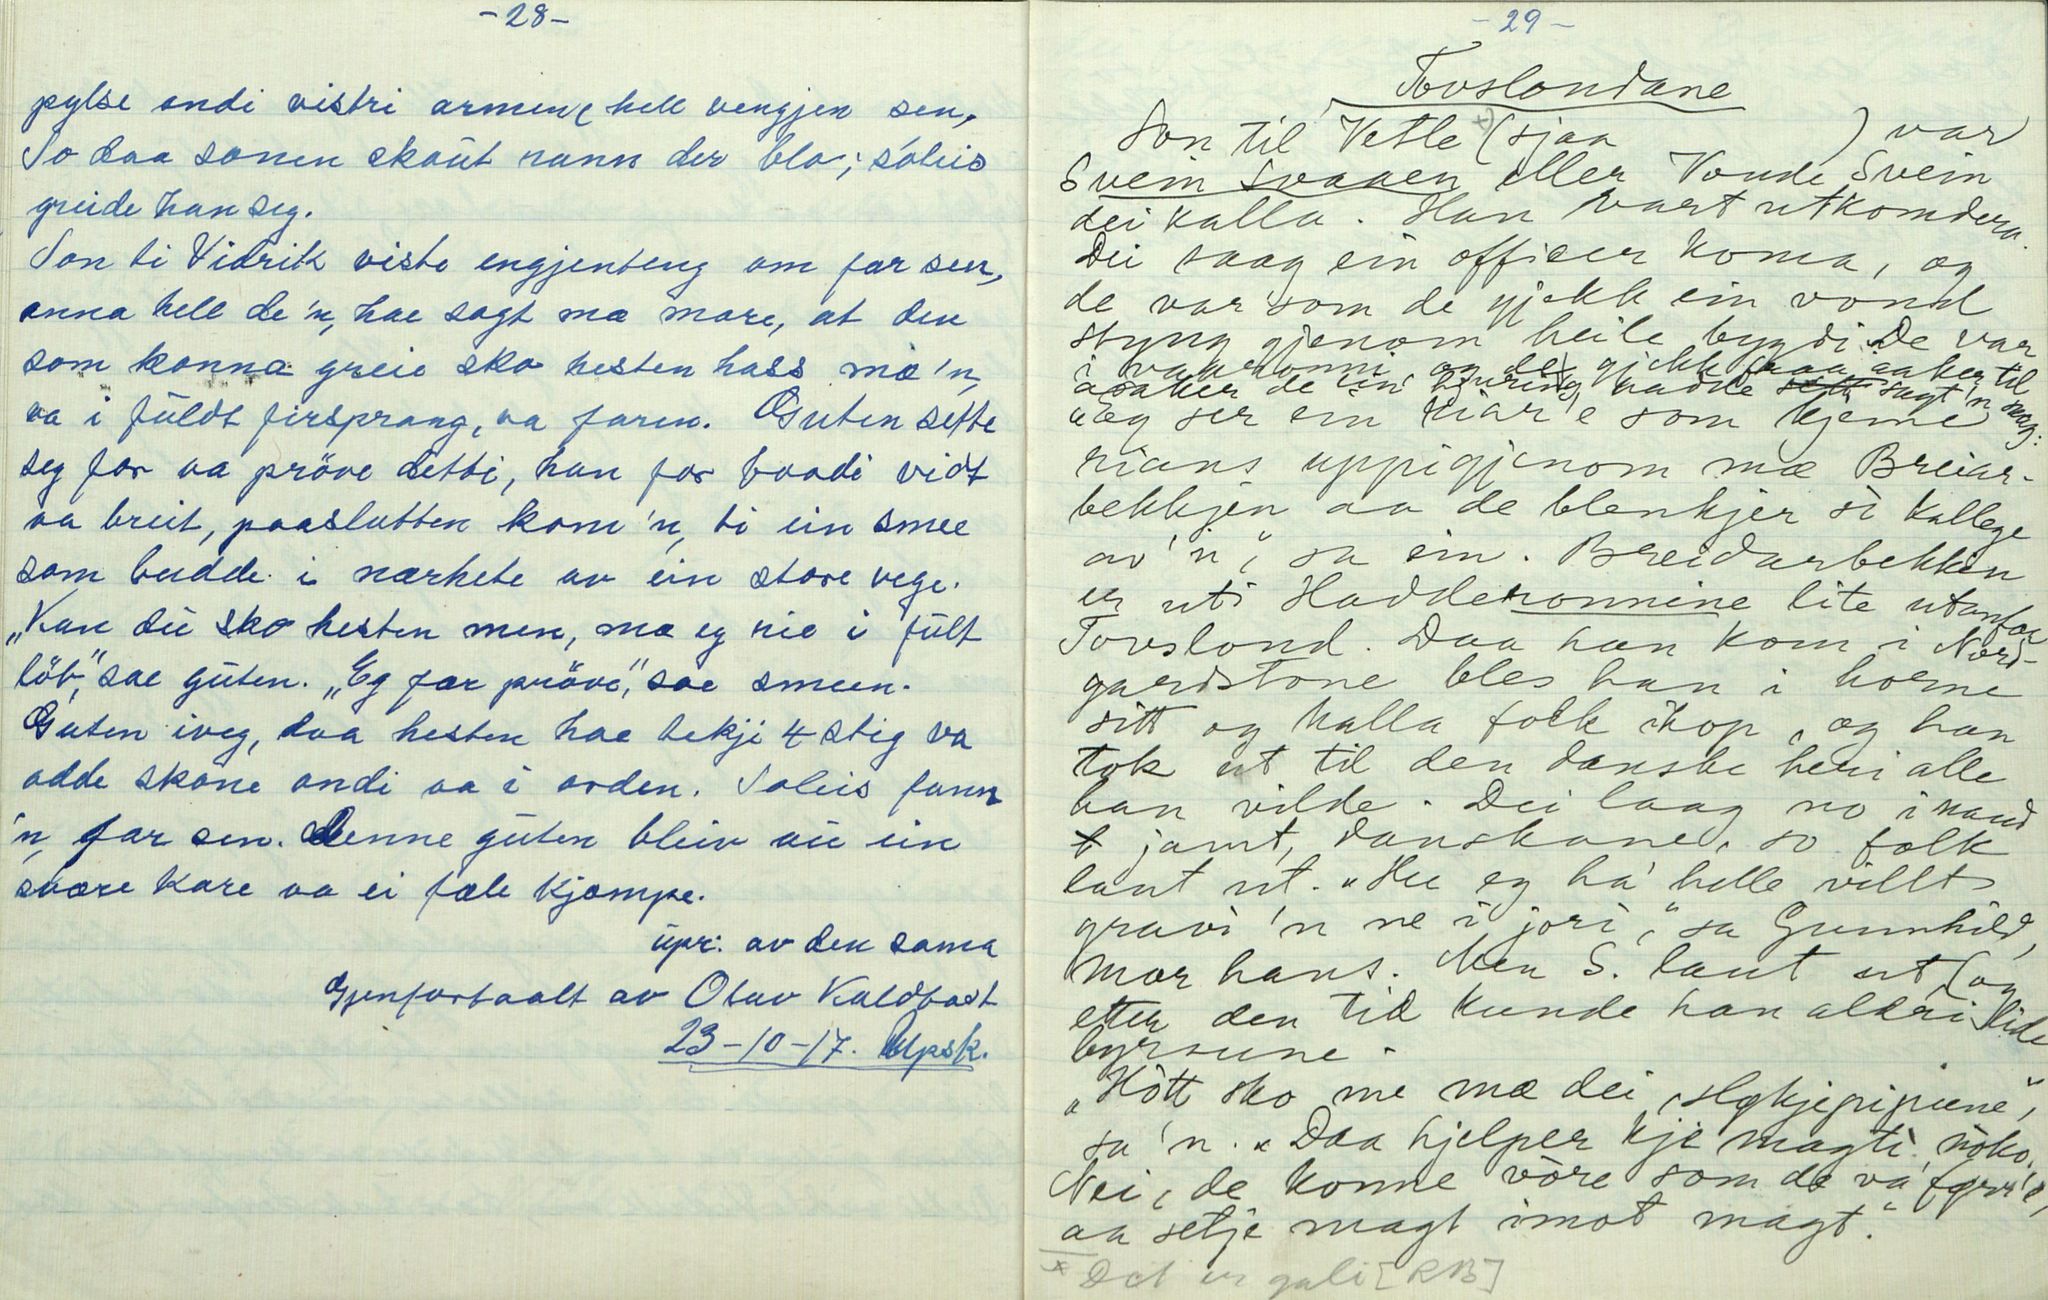 -28-
pylse ondi vistri armen (hell vengjen sen,
So daa sonen skaut rann der blo; soleis
greide han seg.
Son ti Vidrik viste engjenteng om far sen,
onna hell de'n, hae sagt mæ more, at den
som konna greie sko hesten hass mæ'n,
va i fuldt firsprang, va faren. Guten sette
seg for aa pröve detti, han for baadi vidt
aa breit, paaslutten kom'n, ti ein smee
som budde i nærhete av ein store vege.
„Kan du sko hesten men, mæ eg rie i fült
löb", sae güten. „Eg fær pröve", sae smeen.
Guten iveg, daa hesten hae tekji 4 stig va
adde skone ondi aa i orden. Soleis fann
'n, far sen. Denne güten bleiv au ein
svære kare aa ei fæle kjæmpe.
üpr. av den sama
Gjenfortaalt av Olav Kaldbast
23-10-17. Upsk.
-29-
Tovslondane
Son til Vetle x) (sjaa ) var
Svein Svaaen eller Vonde Svein
dei kalla. Han vart utkomdera.
Dei saag ein officer koma, og
de var som de gjekk ein vond
styng gjenom heile bygdi. De var
i vaaronni og dei gjekk fraa aaker til
aaker de ein hjuring hadde sagt'n snag:
„Eg ser ein kiar'e som kjeme
rians uppigjenom mæ Breiar-
bekkjen aa de blenkjer si kallege
av'n", sa ein. Breidarbekken
er uti Hadderonnine lite utanfor
Tovslond. Daa han kom i Nord-
gardstone bles han i horne
sitt og kalla folk ihop, og han
tok ut til den danske heri alle
han vilde. Dei laag no i krand
t jamt, danskane, so folk
laut ut. „Hee eg há helle villt
gravi'n ne i jori", sa Gunnhild,
mor hans. Men S. laut ut, (og
etter den tid kunde han aldri lide
byrsune.
„Hött sko me mæ dei slykjepipune",
sa'n. „Daa hjelper kje magti nöko.
Nei, de konne vöre som de va förr'e,
aa setje magt imot magt."
x Det er gali [RB]